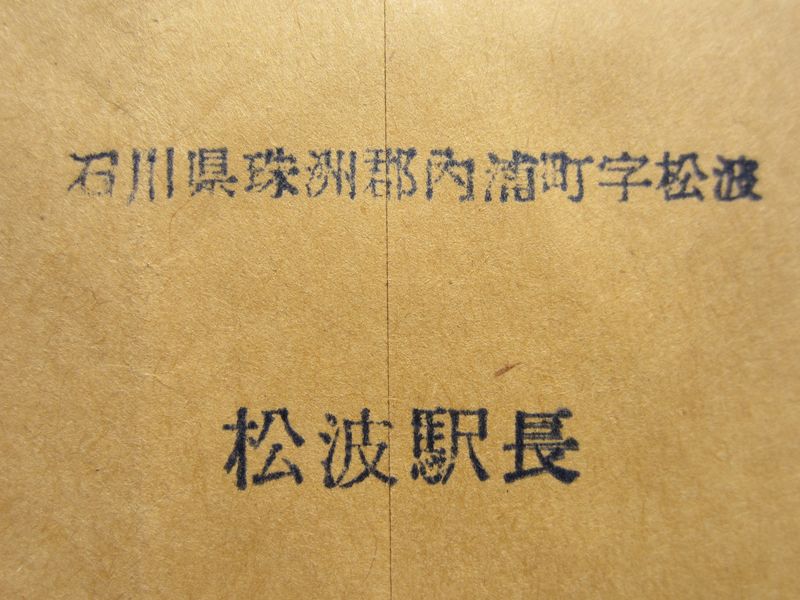 石川県珠洲郡内浦町字松波
松波駅長